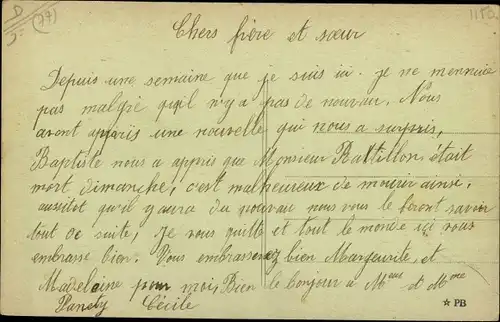 (77)
1152
Chers frère et sœur
Depuis une semaine que je suis ici je ne mennuie
pas malgré qu'il n'y a pas de nouvau. Nous
avont appris une nouvelle qui nous a surpris,
Baptiste nous a appris que Monsieur Rattillon était
mort dimanche, c'est malheureux de mourir ainsi,
aussitot qu'il y aura du nouvau nous vous le feront savoir
tout de suite, je vous quitte et tout le monde ici vous
embrasse bien. Vous embrasserez bien Marguerite, et
Madelaine pour moi, Bien le bonjour à Meur et Mme
Cécile
★ PB